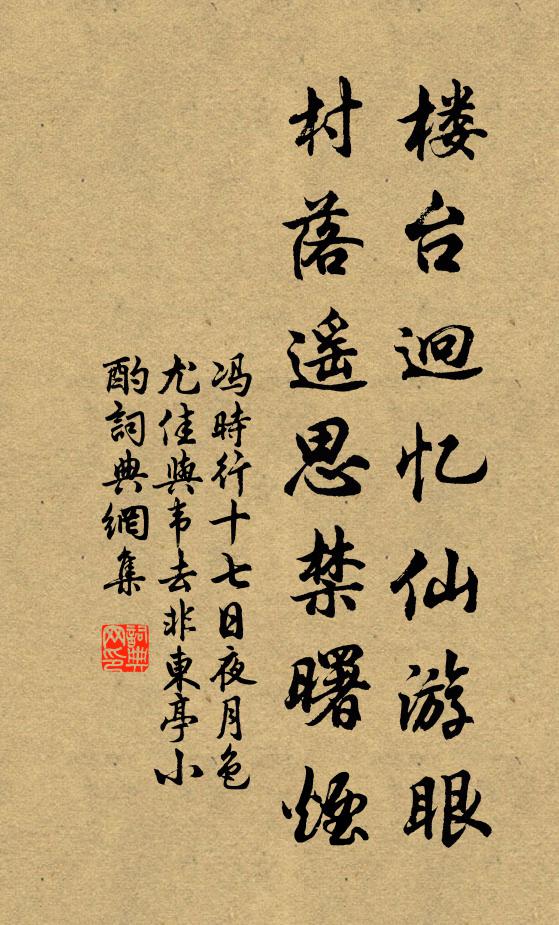 楼台迥忆仙游眼
村落遥思禁曙煙
冯時行十七日夜月色
尤佳與韦去非東亭小
酌詞典網集
詞典
网印